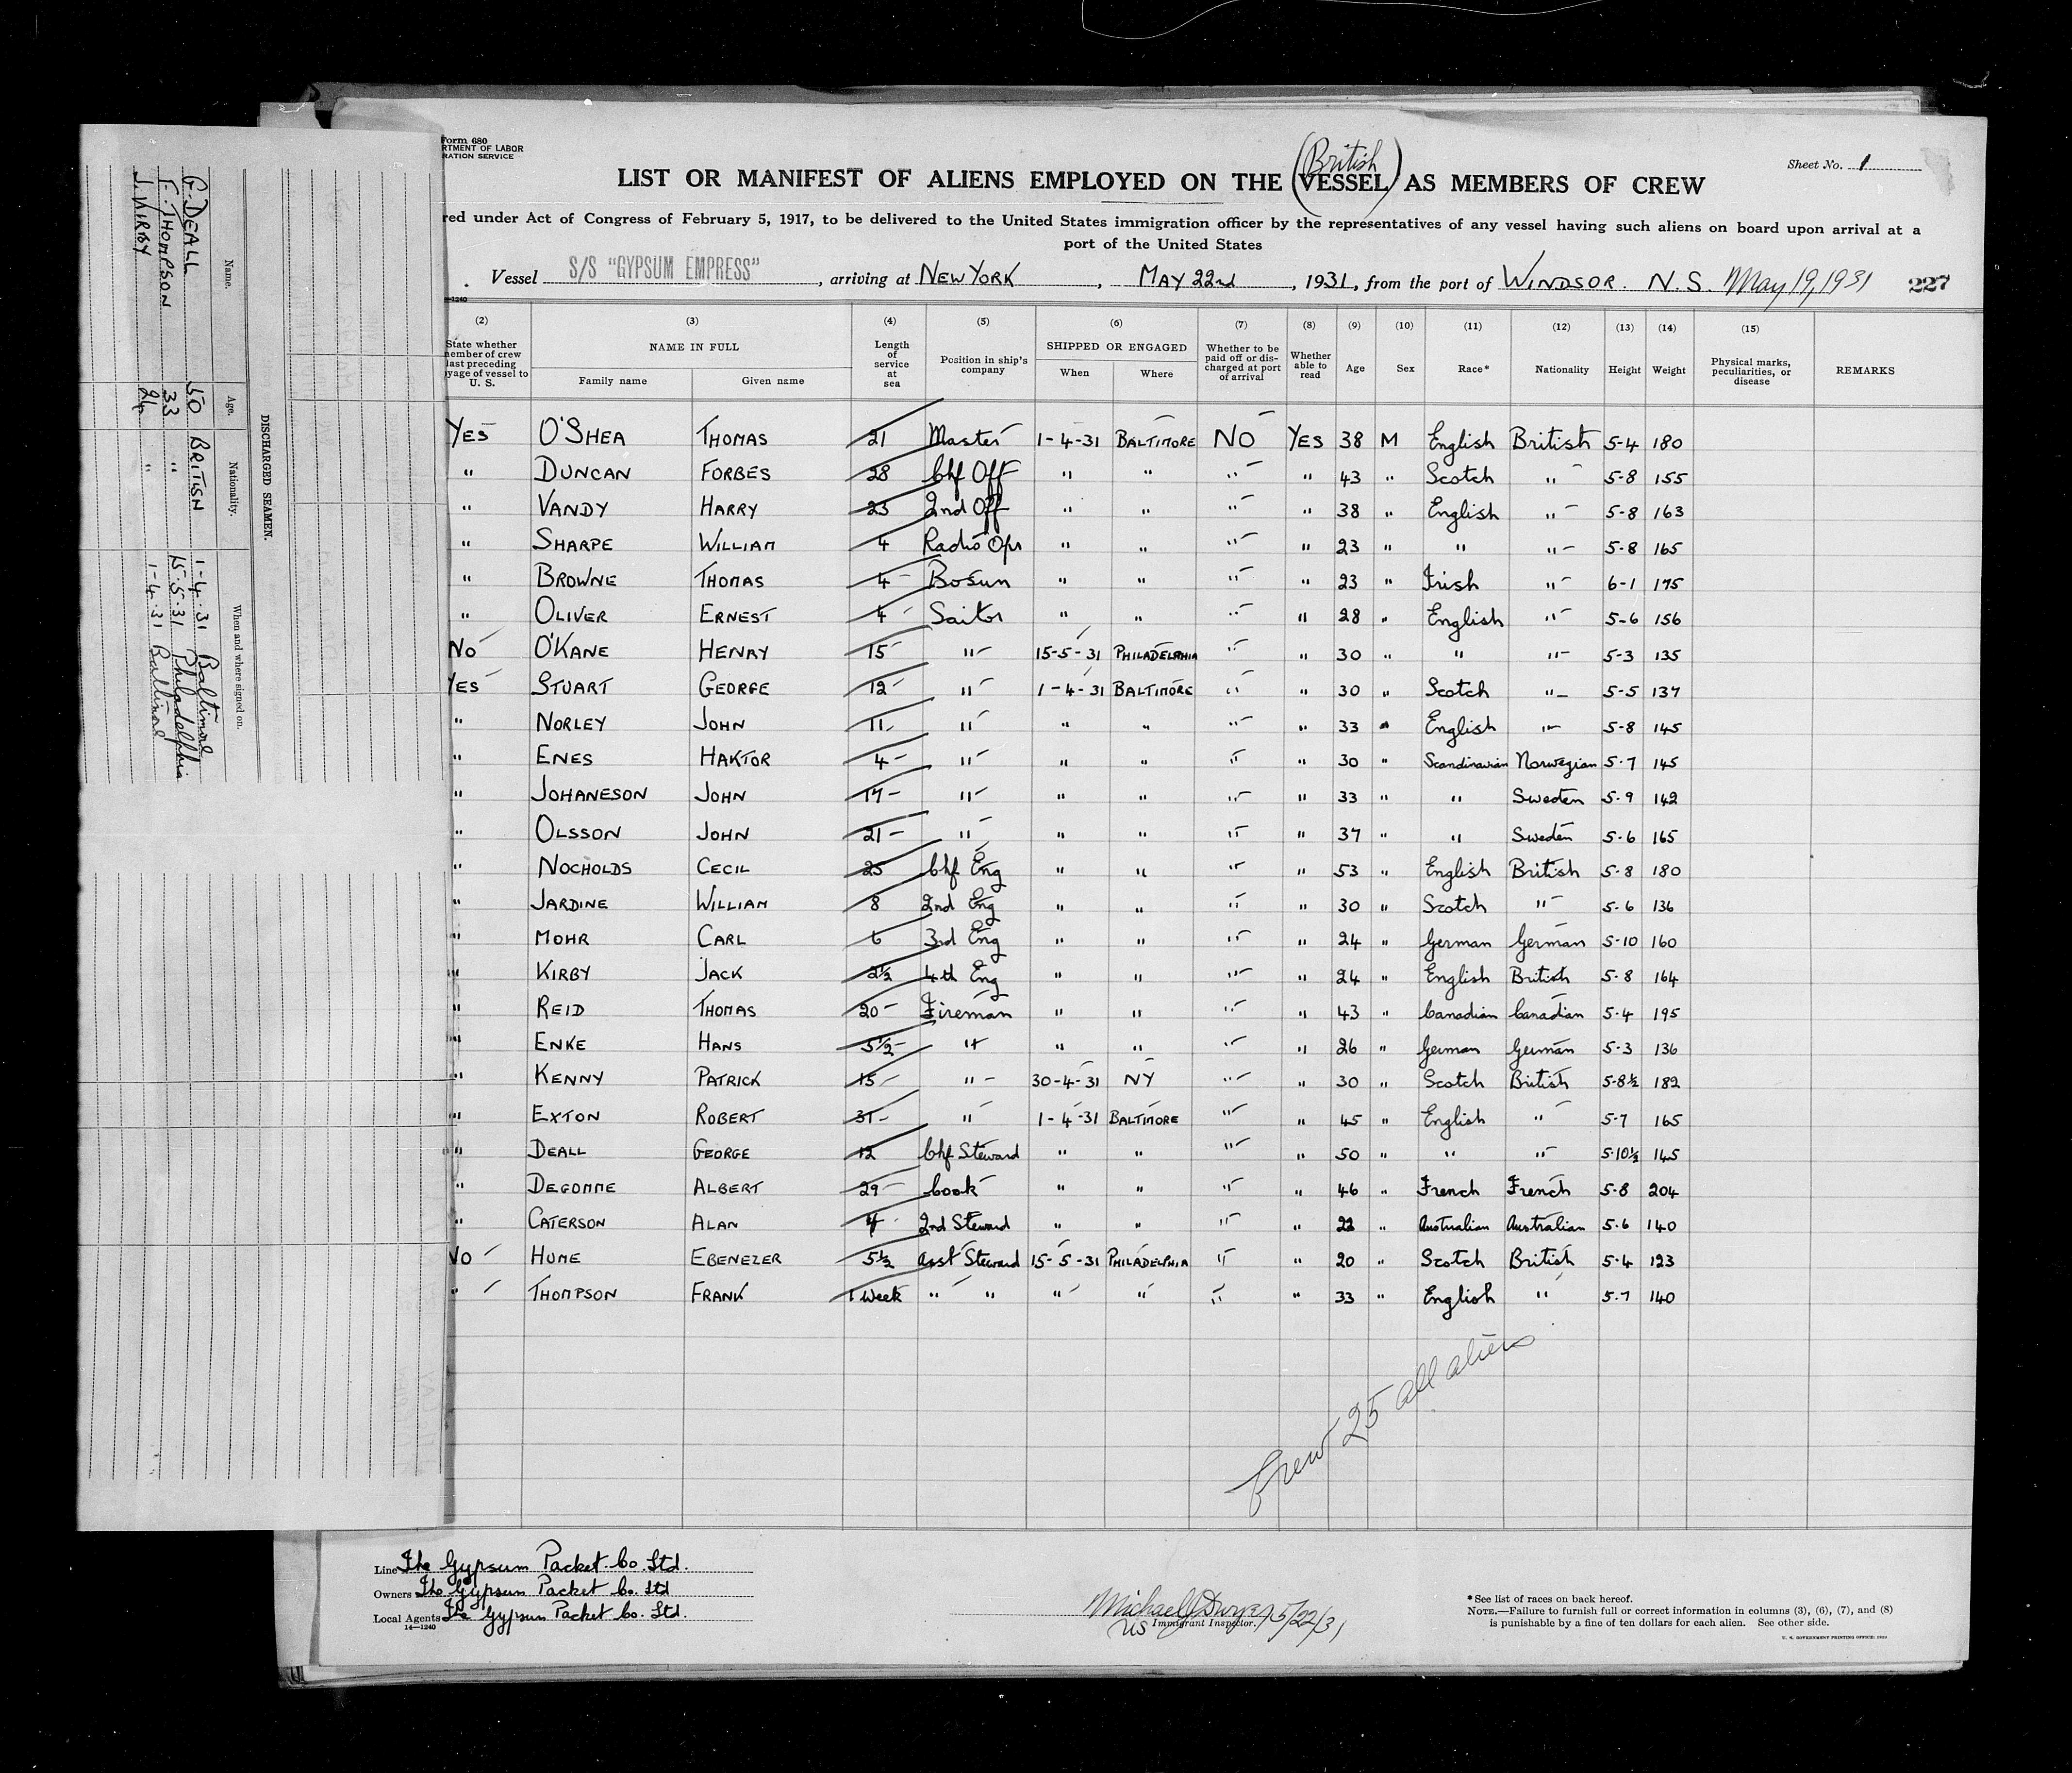 Form 680
RTMENT OF LABOR
RATION SERVICE
Sheet No. 1
(British)
LIST OR MANIFEST OF ALIENS EMPLOYED ON THE VESSEL AS MEMBERS OF CREW
red under Act of Congress of February 5, 1917, to be delivered to the United States immigration officer by the representatives of any vessel having such aliens on board upon arrival at a
port of the United States
Vessel S/S "GYPSUM EMPRESS", arriving at NEW YORK, MAY 22nd, 1931, from the port of WINDSOR. N.S. May 19, 1931 227
—1240
(2) (3) (4) (5) (6) (7) (8) (9) (10) (11) (12) (13) (14) (15)
State whether member of crew last preceding yage of vessel to U. S. NAME IN FULL Family name Given name Length of service at sea Position in ship's company SHIPPED OR ENGAGED When Where Whether to be paid off or discharged at port of arrival Whether able to read Age Sex Race* Nationality Height Weight Physical marks, peculiarities, or disease REMARKS
YES O'SHEA THOMAS 21 Master 1-4-31 BALTIMORE NO YES 38 M English British 5-4 180
" DUNCAN FORBES 28 Chf Off " " " " 43 " Scotch " 5-8 155
" VANDY HARRY 23 2nd Off " " " " 38 " English " 5-8 163
" SHARPE WILLIAM 4 Radio Opr " " " " 23 " " " 5-8 165
" BROWNE THOMAS 4 Bosun " " " " 23 " Irish " 6-1 175
" OLIVER ERNEST 4 Sailor " " " " 28 " English " 5-6 156
NO O'KANE HENRY 15 " 15-5-31 PHILADELPHIA " " 30 " " " 5-3 135
YES STUART GEORGE 12 " 1-4-31 BALTIMORE " " 30 " Scotch " 5-5 137
" NORLEY JOHN 11 " " " " " 33 " English " 5-8 145
" ENES HAKTOR 4 " " " " " 30 " Scandinavian Norwegian 5-7 145
" JOHANESON JOHN 17 " " " " " 33 " " Sweden 5-9 142
" OLSSON JOHN 21 " " " " " 37 " " Sweden 5-6 165
" NOCHOLDS CECIL 25 Chf Eng " " " " 53 " English British 5-8 180
" JARDINE WILLIAM 8 2nd Eng " " " " 30 " Scotch " 5-6 136
" MOHR CARL 6 3rd Eng " " " " 24 " German German 5-10 160
" KIRBY JACK 2½ 4th Eng " " " " 24 " English British 5-8 164
" REID THOMAS 20 Fireman " " " " 43 " Canadian Canadian 5-4 195
" ENKE HANS 5½ " " " " " 26 " German German 5-3 136
" KENNY PATRICK 15 " 30-4-31 NY " " 30 " Scotch British 5-8½ 182
" EXTON ROBERT 31 " 1-4-31 BALTIMORE " " 45 " English " 5-7 165
" DEALL GEORGE 12 Chf Steward " " " " 50 " " " 5-10½ 145
" DEGOMME ALBERT 29 Cook " " " " 46 " French French 5-8 204
" CATERSON ALAN 4 2nd Steward " " " " 22 " Australian Australian 5-6 140
NO HUME EBENEZER 5½ Asst Steward 15-5-31 PHILADELPHIA " " 20 " Scotch British 5-4 123
" THOMPSON FRANK 1 Week " " " " " " 33 " English " 5-7 140
Crew 25 all aliens
Line The Gypsum Packet Co. Ltd.
Owners The Gypsum Packet Co. Ltd
Local Agents The Gypsum Packet Co. Ltd.
14—1240
Michael J Dwyer 5/22/31
US Immigrant Inspector.
*See list of races on back hereof.
NOTE.—Failure to furnish full or correct information in columns (3), (6), (7), and (8)
is punishable by a fine of ten dollars for each alien. See other side.
U. S. GOVERNMENT PRINTING OFFICE: 1930
DISCHARGED SEAMEN.
Name. Age. Nationality. When and where signed on.
G. DEALL 50 BRITISH 1-4-31 Baltimore
F. THOMPSON 33 " 15-5-31 Philadelphia
J. KIRBY 24 " 1-4-31 Baltimore